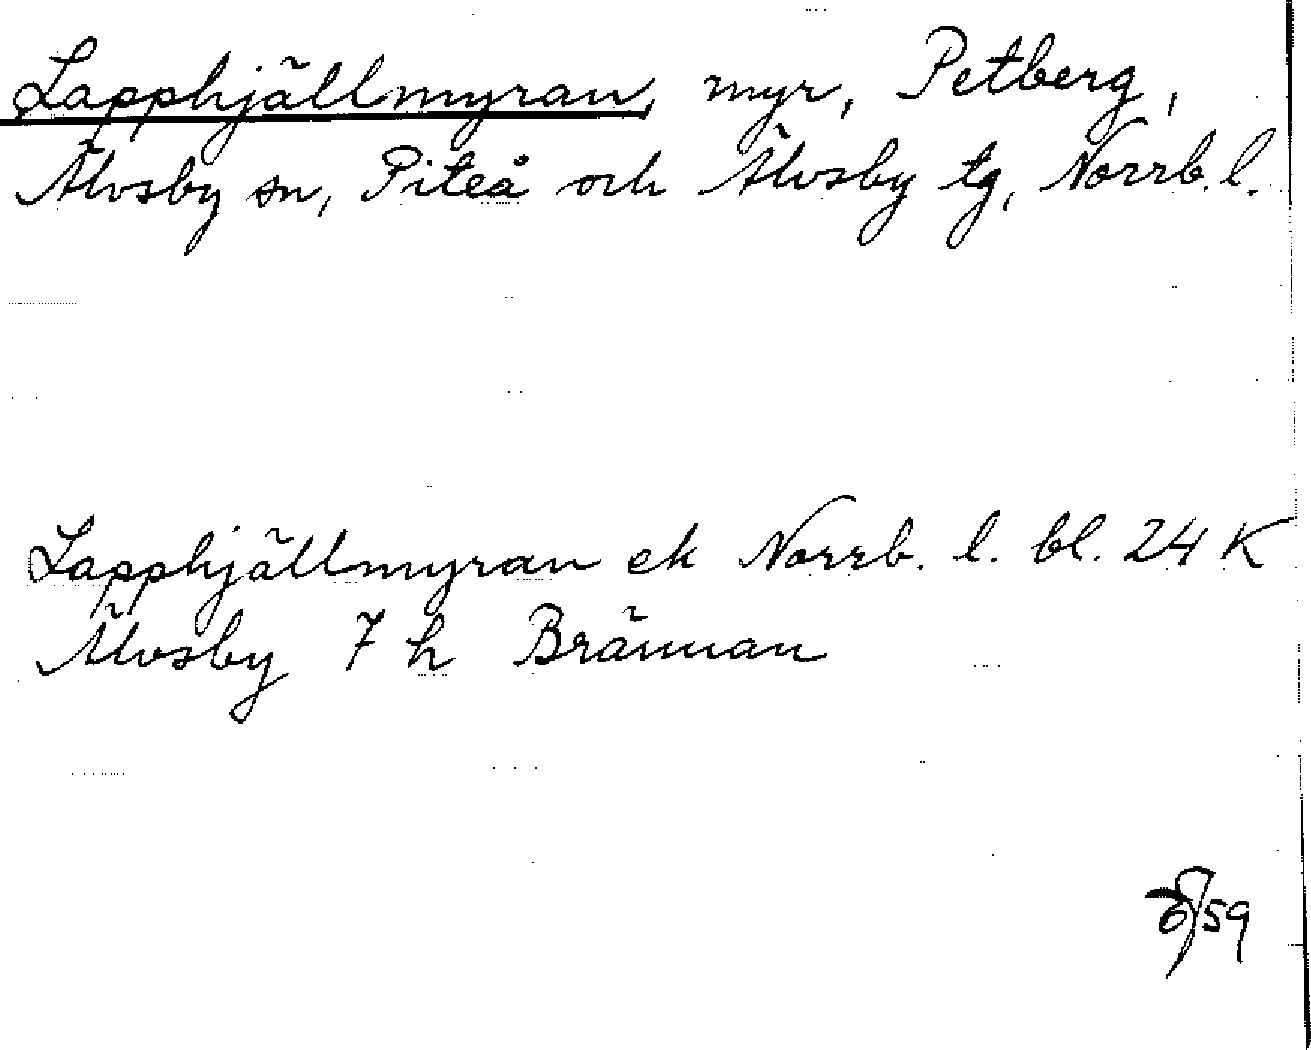 Lapphjällmyran, myr, Petberg,
Älvsby sn, Piteå och Älvsby tg, Norrb. l.
Lapphjällmyran ek Norrb. l. bl. 24 K
Älvsby 7 h Brännan